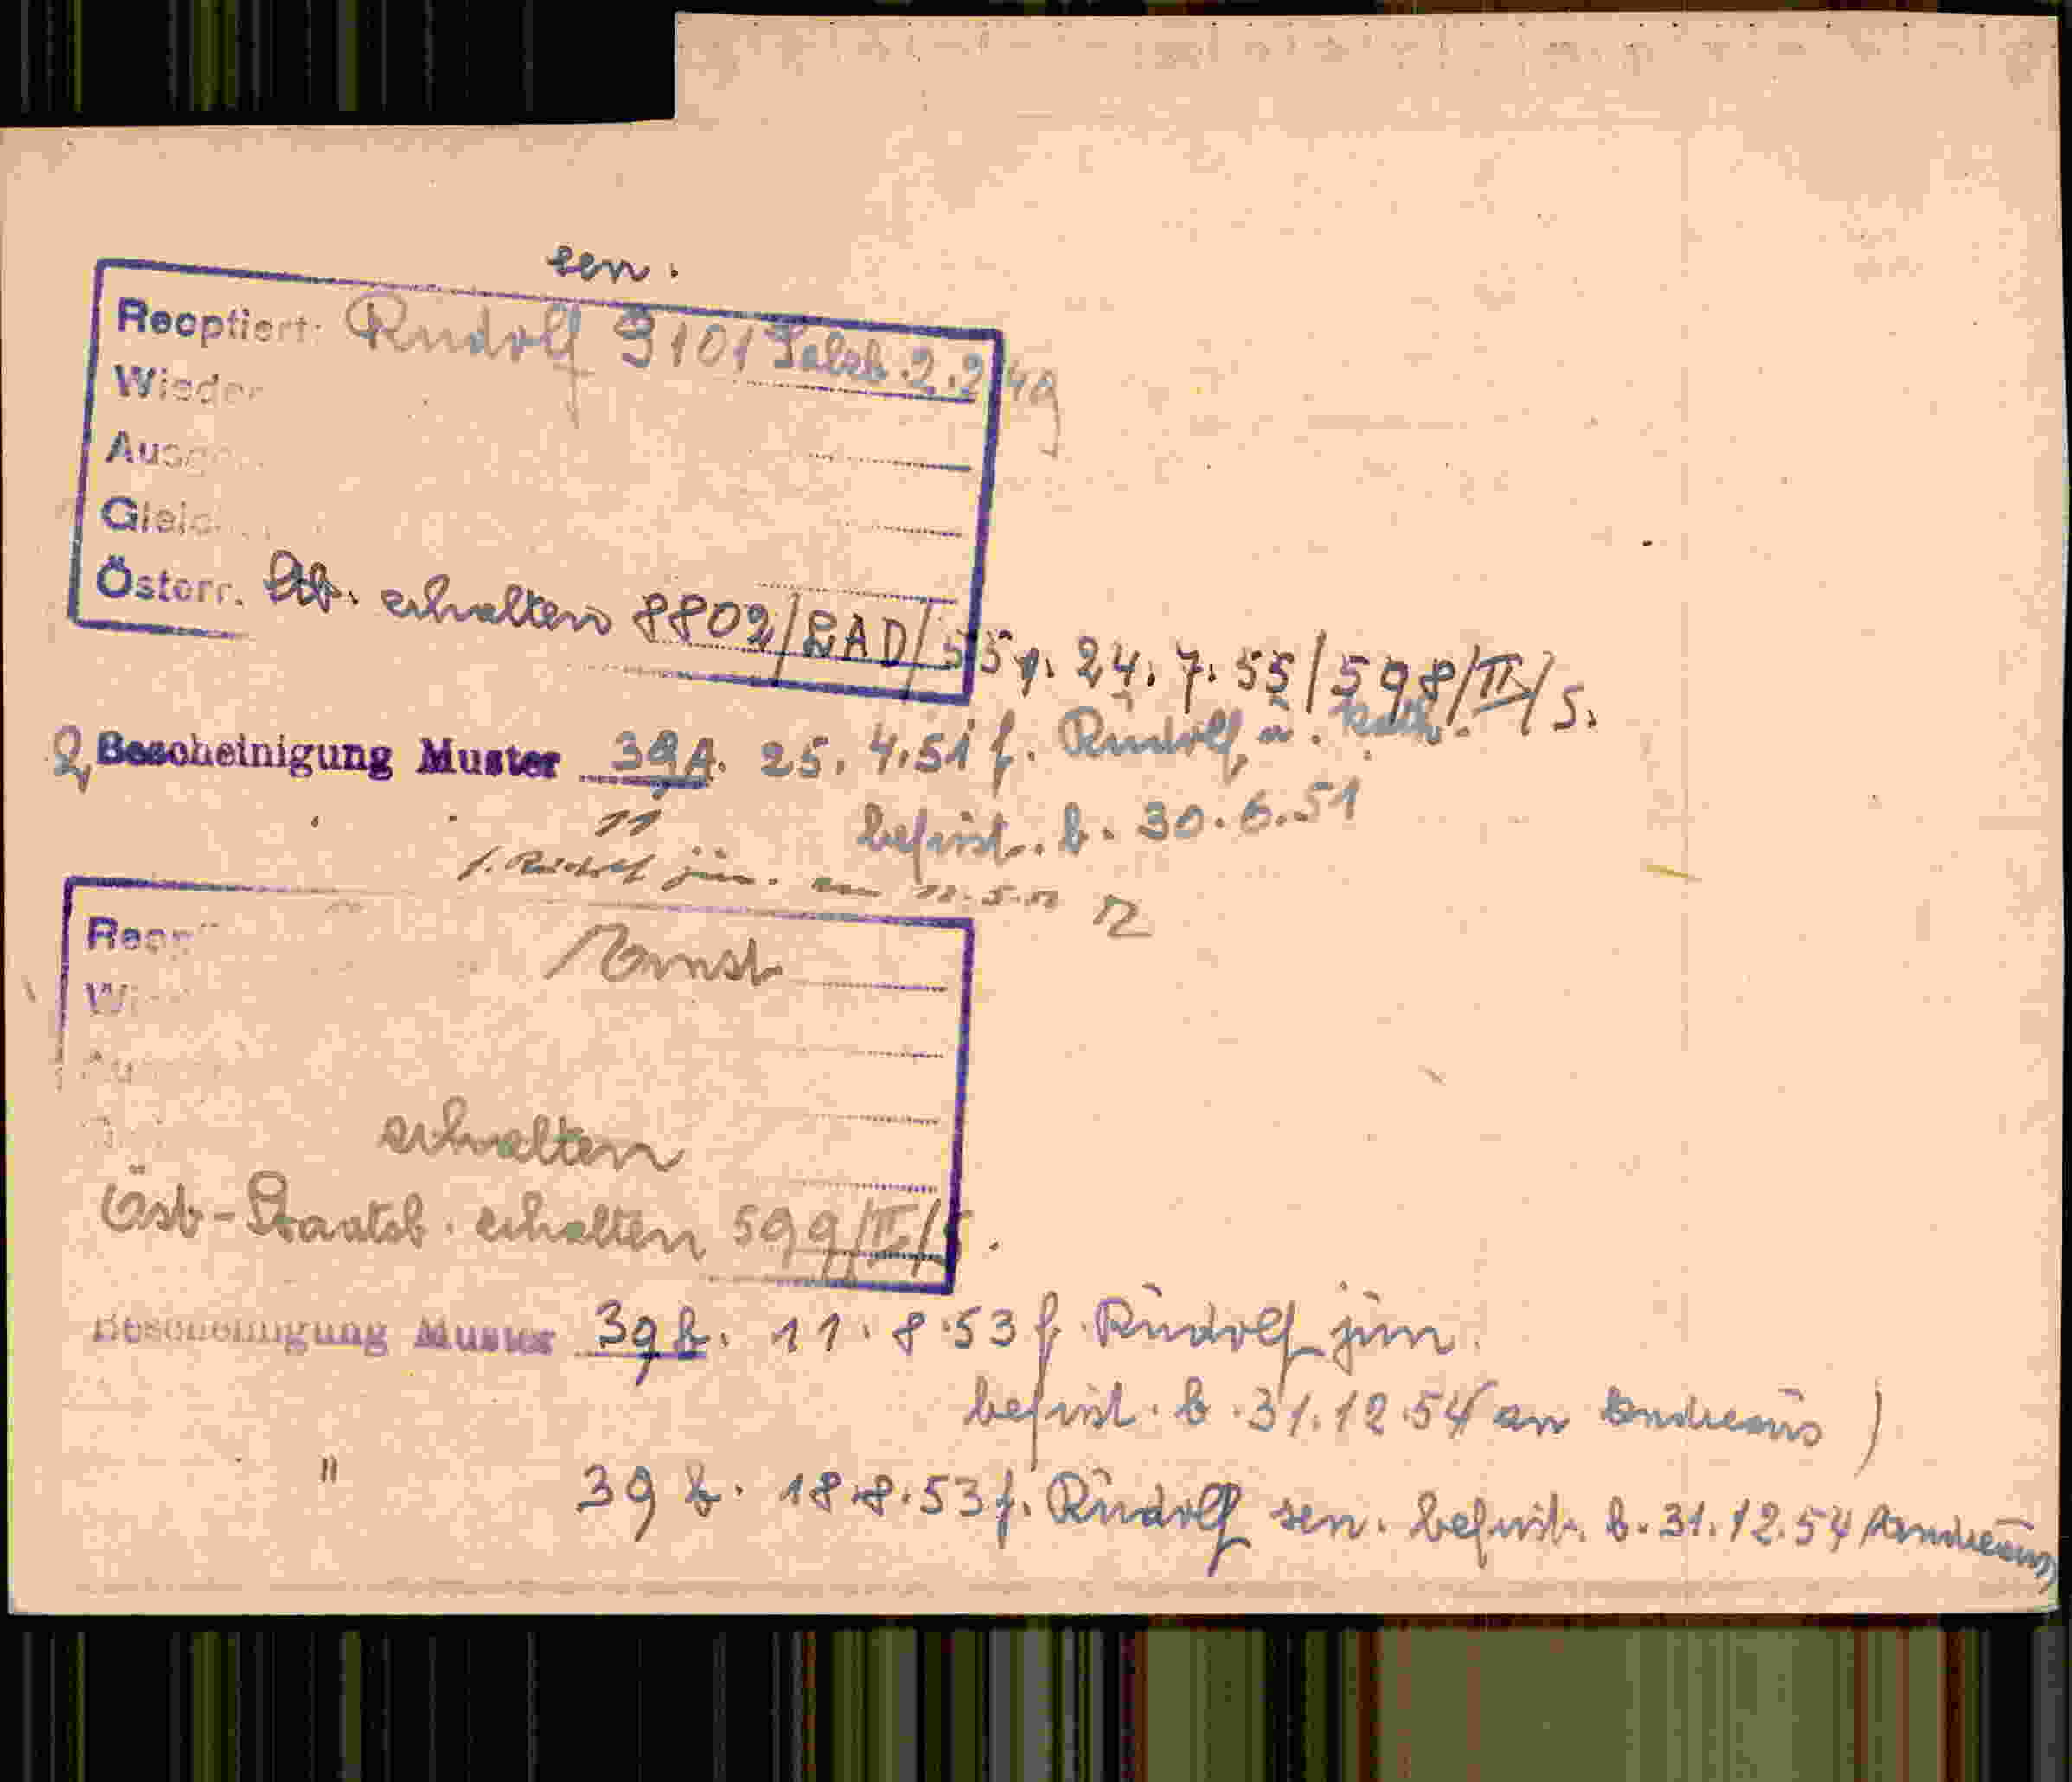 sen.
Reoptiert: Rudolf 3101 Salzb. 2.2.49
Wieder
Ausge
Gleic
Österr. Stb. erhalten 8802/EAD/55 v. 24.7.55/598/II/S.
2 Bescheinigung Muster 39A. 25.4.51 f. Rudolf u. Kath.
befrist. b. 30.6.51
"
f. Rudolf jun. am
Reop
Ernst
Wi
erhalten
Öst-Staatsb. erhalten 599/II/S.
Bescheinigung Muster 39b. 11.8.53 f. Rudolf jun.
befrist. b. 31.12.54 an
" 39 b. 18.8.53 f. Rudolf sen. befrist. b. 31.12.54